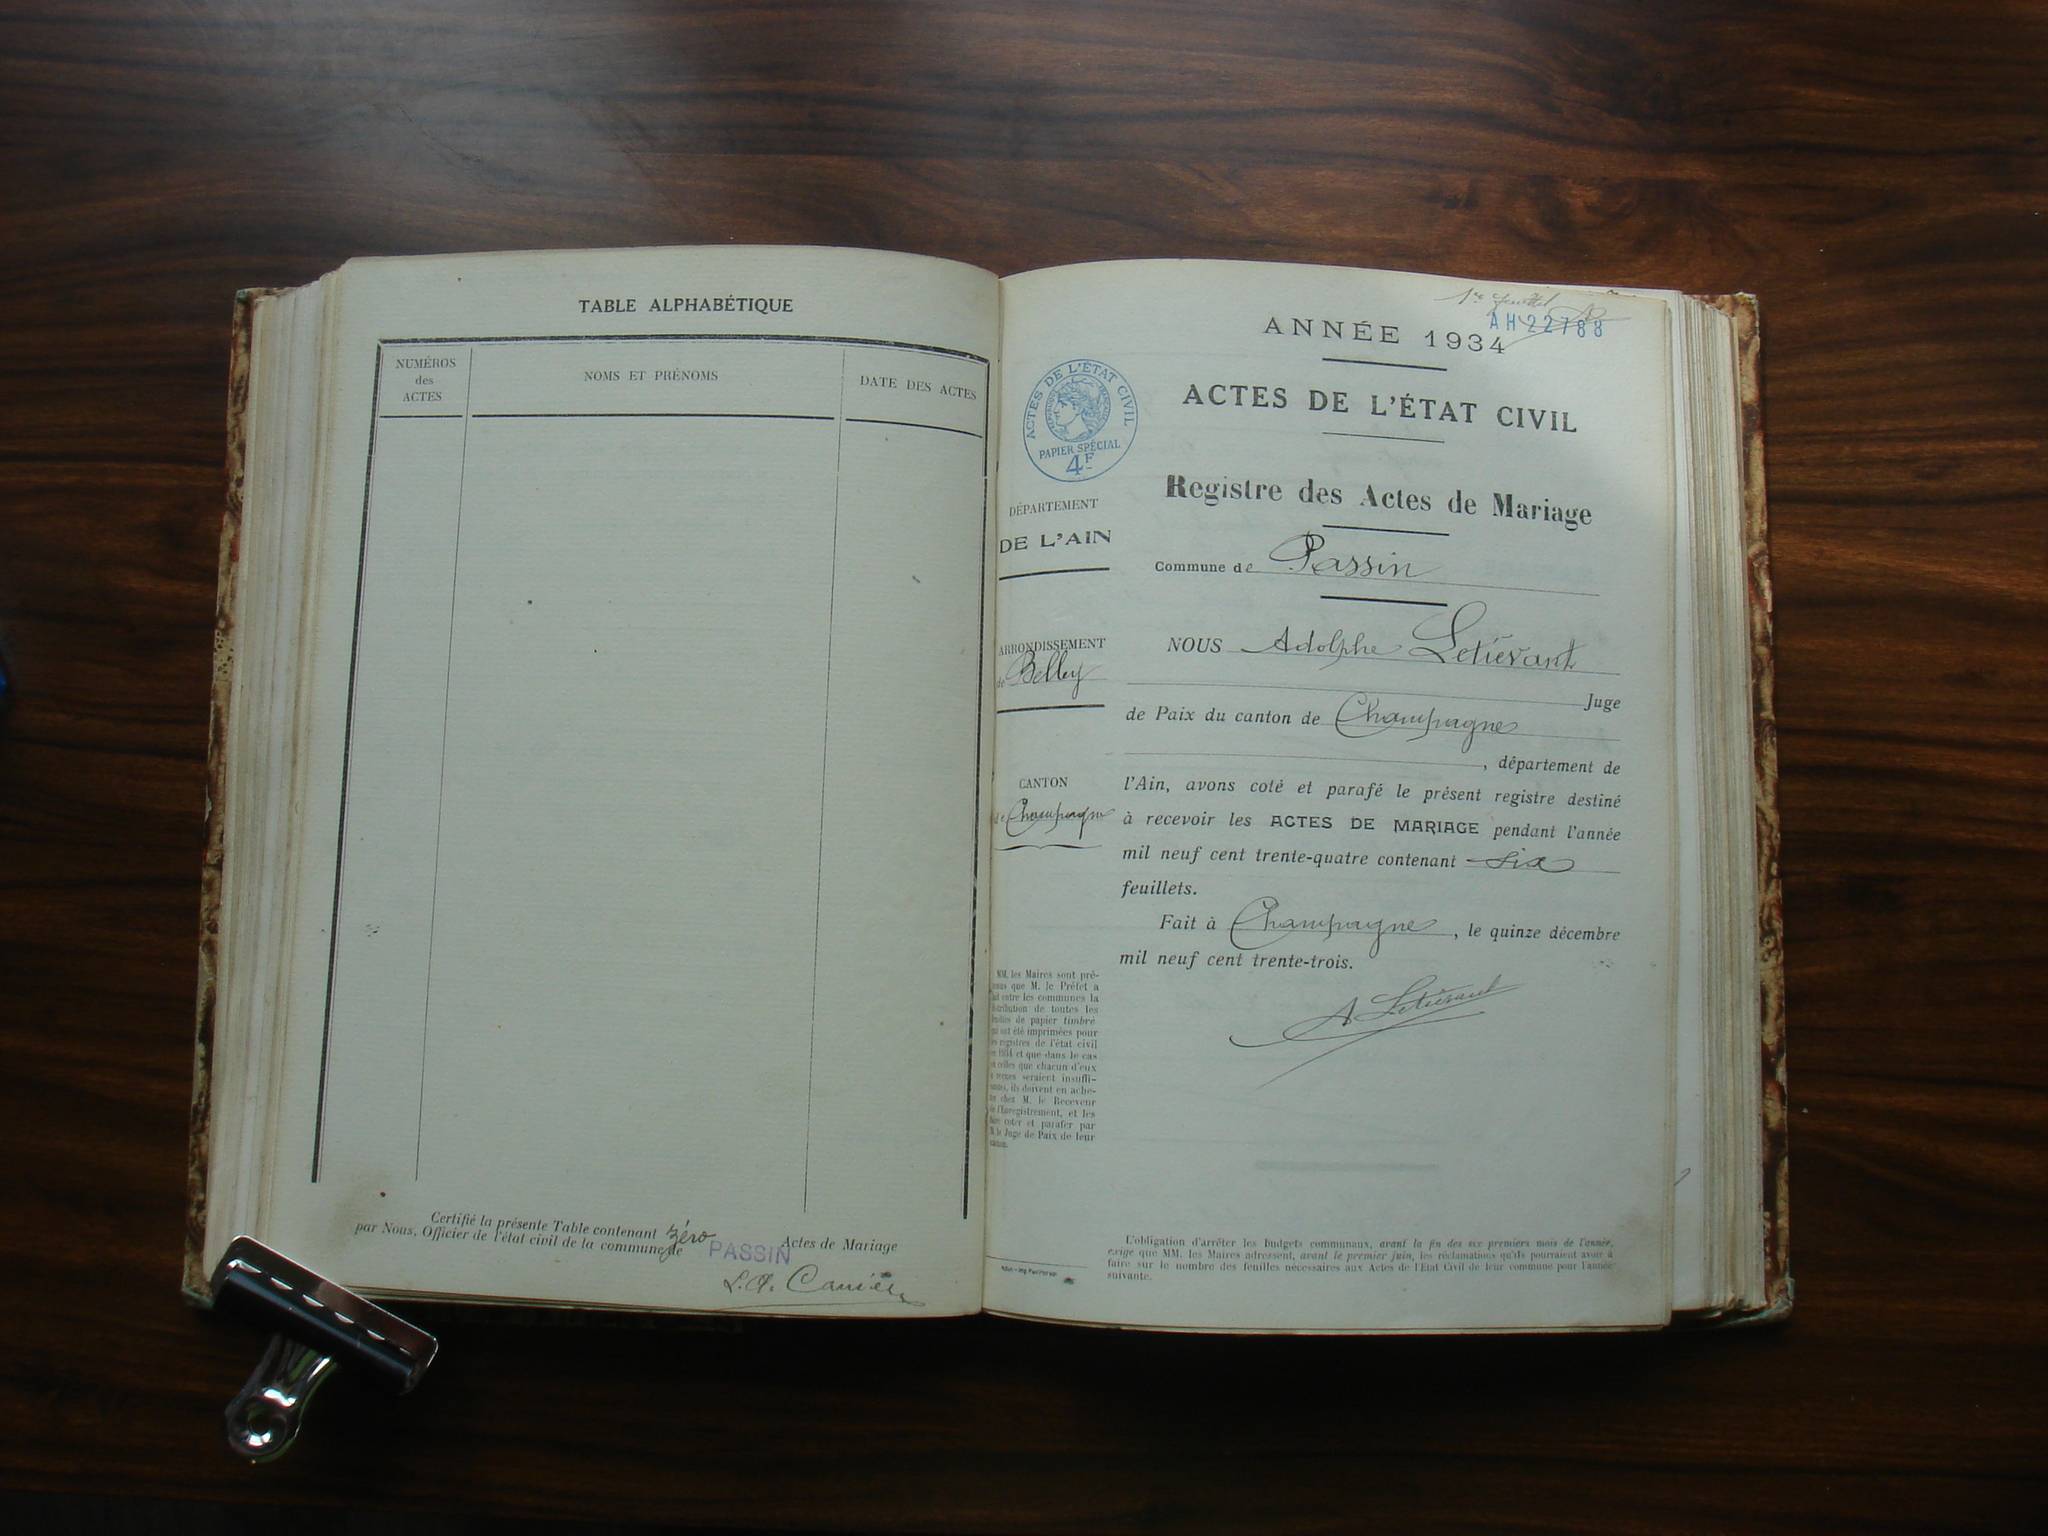 TABLE ALPHABÉTIQUE
NUMÉROS
des
ACTES
NOMS ET PRÉNOMS
DATE DES ACTES
Certifié la présente Table contenant zéro Actes de Mariage
par Nous, Officier de l'état civil de la commune de PASSIN
1er
AH 22788
ANNÉE 1934
ACTES DE L'ÉTAT CIVIL
PAPIER SPÉCIAL
4F
ACTES DE L'ÉTAT CIVIL
Registre des Actes de Mariage
DÉPARTEMENT
DE L'AIN
Commune de Passin
ARRONDISSEMENT
de Belley
NOUS Adolphe Letiévant
Juge
de Paix du canton de Champagne
, département de
CANTON
de Champagne
l'Ain, avons coté et parafé le présent registre destiné
à recevoir les ACTES DE MARIAGE pendant l'année
mil neuf cent trente-quatre contenant six
feuillets.
Fait à Champagne, le quinze décembre
mil neuf cent trente-trois.
A Letiévant
MM. les Maires sont pré-
que M. le Préfet a
entre les communes la
de toutes les
de papier timbré
ont été imprimées pour
registres de l'état civil
1934 et que dans le cas
celles que chacun d'eux
seraient insuffi-
ils doivent en ache-
chez M. le Receveur
l'Enregistrement, et les
coter et parafer par
le Juge de Paix de leur
L'obligation d'arrêter les Budgets communaux, avant la fin des six premiers mois de l'année,
exige que MM. les Maires adressent, avant le premier juin, les réclamations qu'ils pourraient avoir à
faire sur le nombre des feuilles nécessaires aux Actes de l'Etat Civil de leur commune pour l'année
suivante.